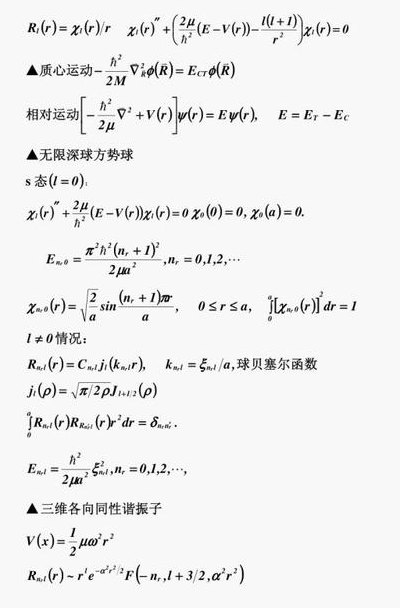 R_l(r)=χ_l(r)/r  χ_l(r)″+(2μ/ħ²(E−V(r))−l(l+1)/r²)χ_l(r)=0
▲质心运动−ħ²/2M ∇²_R ϕ(R⃗)=E_CT ϕ(R⃗)
相对运动[−ħ²/2μ ∇²+V(r)]ψ(r)=Eψ(r),  E=E_T−E_C
▲无限深球方势球
s 态(l=0):
χ_l(r)″+2μ/ħ²(E−V(r))χ_l(r)=0 χ_0(0)=0, χ_0(a)=0.
E_{n_r 0}=π²ħ²(n_r+1)²/2μa², n_r=0,1,2,⋯
χ_{n_r 0}(r)=√(2/a) sin (n_r+1)πr/a,  0≤r≤a,  ∫_0^a[χ_{n_r 0}(r)]²dr=1
l≠0情况:
R_{n_r l}(r)=C_{n_r l} j_l(k_{n_r l}r),  k_{n_r l}=ξ_{n_r l}/a,球贝塞尔函数
j_l(ρ)=√(π/2ρ)J_{l+1/2}(ρ)
∫_0^a R_{n_r l}(r)R_{R n_r′ l}(r)r²dr=δ_{n_r n_r′}.
E_{n_r l}=ħ²/2μa² ξ²_{n_r l}, n_r=0,1,2,⋯,
▲三维各向同性谐振子
V(x)=1/2 μω²r²
R_{n_r l}(r)~r^l e^{−α²r²/2}F(−n_r,l+3/2,α²r²)